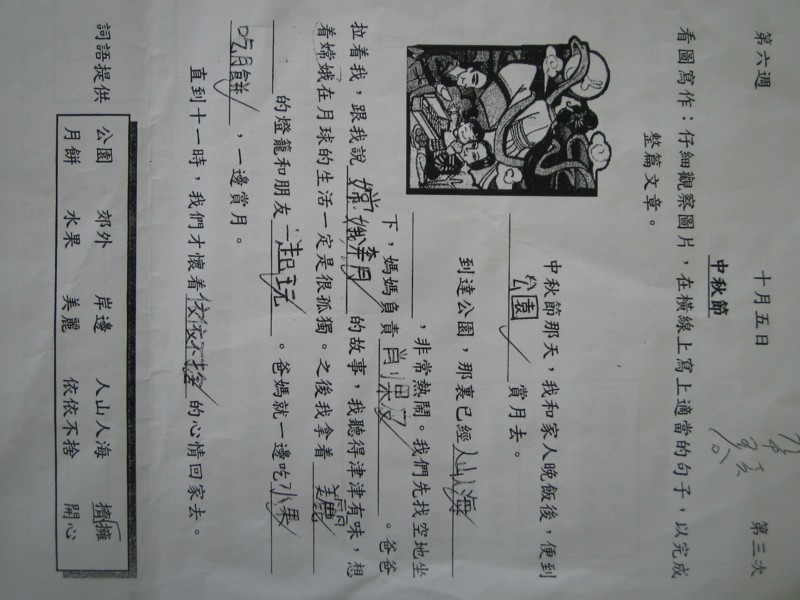 第六週 十月五日 第三次
中秋節
看圖寫作：仔細觀察圖片，在橫線上寫上適當的句子，以完成
整篇文章。
中秋節那天，我和家人晚飯後，便到
公園賞月去。
到達公園，那裏已經人山人海
，非常熱鬧。我們先找空地坐
下，媽媽負責。爸爸
拉着我，跟我說嫦娥奔月的故事，我聽得津津有味，想
着嫦娥在月球的生活一定是很孤獨。之後我拿着美麗
的燈籠和朋友一起玩。爸媽就一邊吃水果
吃月餅，一邊賞月。
直到十一時，我們才懷着依依不捨的心情回家去。
詞語提供
公園 郊外 岸邊 人山人海 擠擁
月餅 水果 美麗 依依不捨 開心